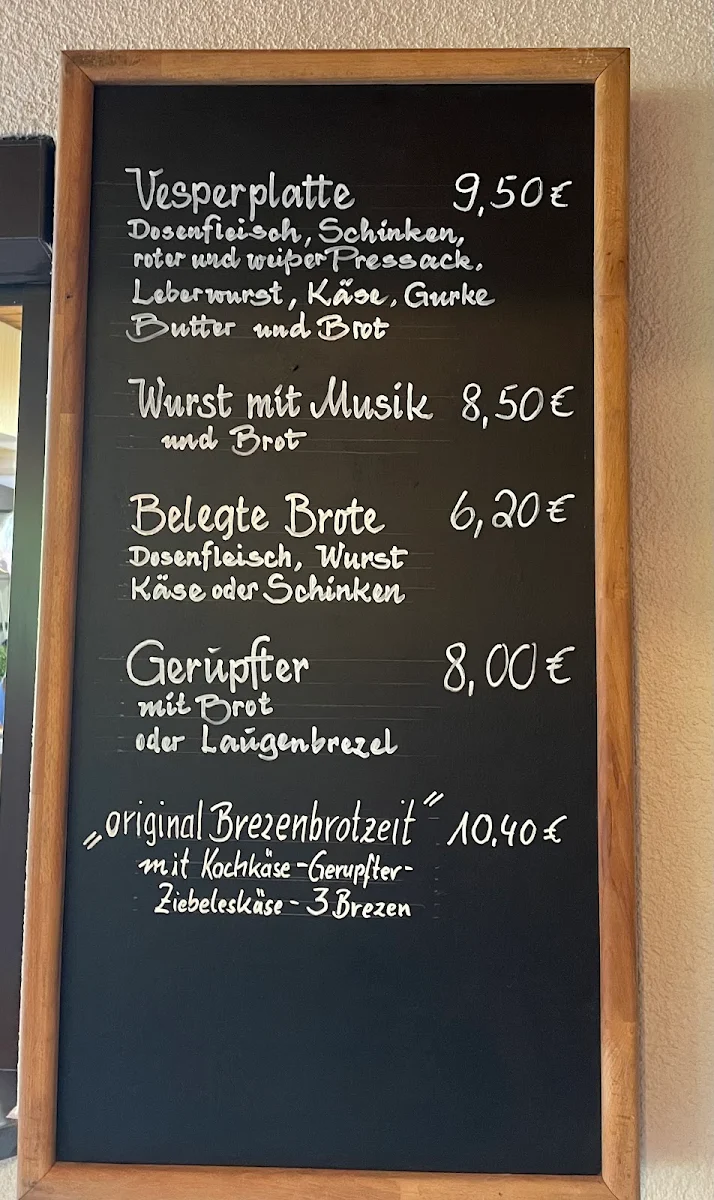 Vesperplatte 9,50€
Dosenfleisch, Schinken,
roter und weißer Pressack.
Leberwurst, Käse, Gurke
Butter und Brot
Wurst mit Musik 8,50€
und Brot
Belegte Brote 6,20€
Dosenfleisch, Wurst
Käse oder Schinken
Gerupfter 8,00€
mit Brot
oder Laugenbrezel
„original Brezenbrotzeit" 10.40€
mit Kochkäse-Gerupfter-
Ziebeleskäse - 3 Brezen